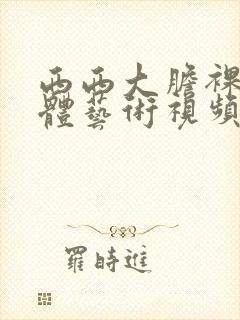 西西大膽裸
體藝術視頻
羅時進